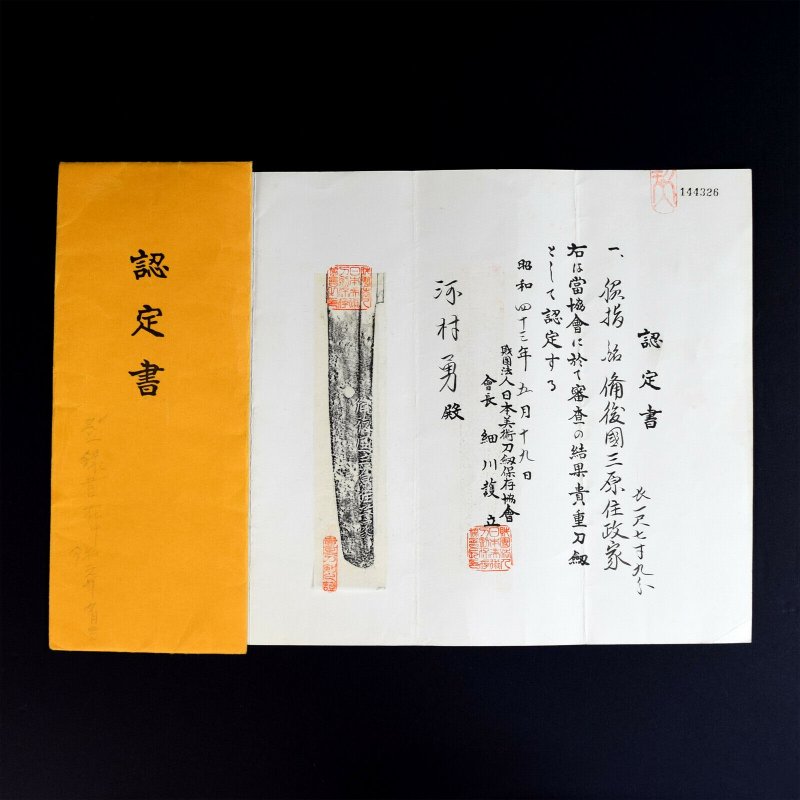 認定書
144326
認定書
一、脇指 銘 備後國三原住政家
長一尺七寸九分
右は當協會に於て審査の結果貴重刀劔
として認定する
昭和四十三年五月十九日
財団法人日本美術刀劔保存協會
會長 細川護立
河村勇殿